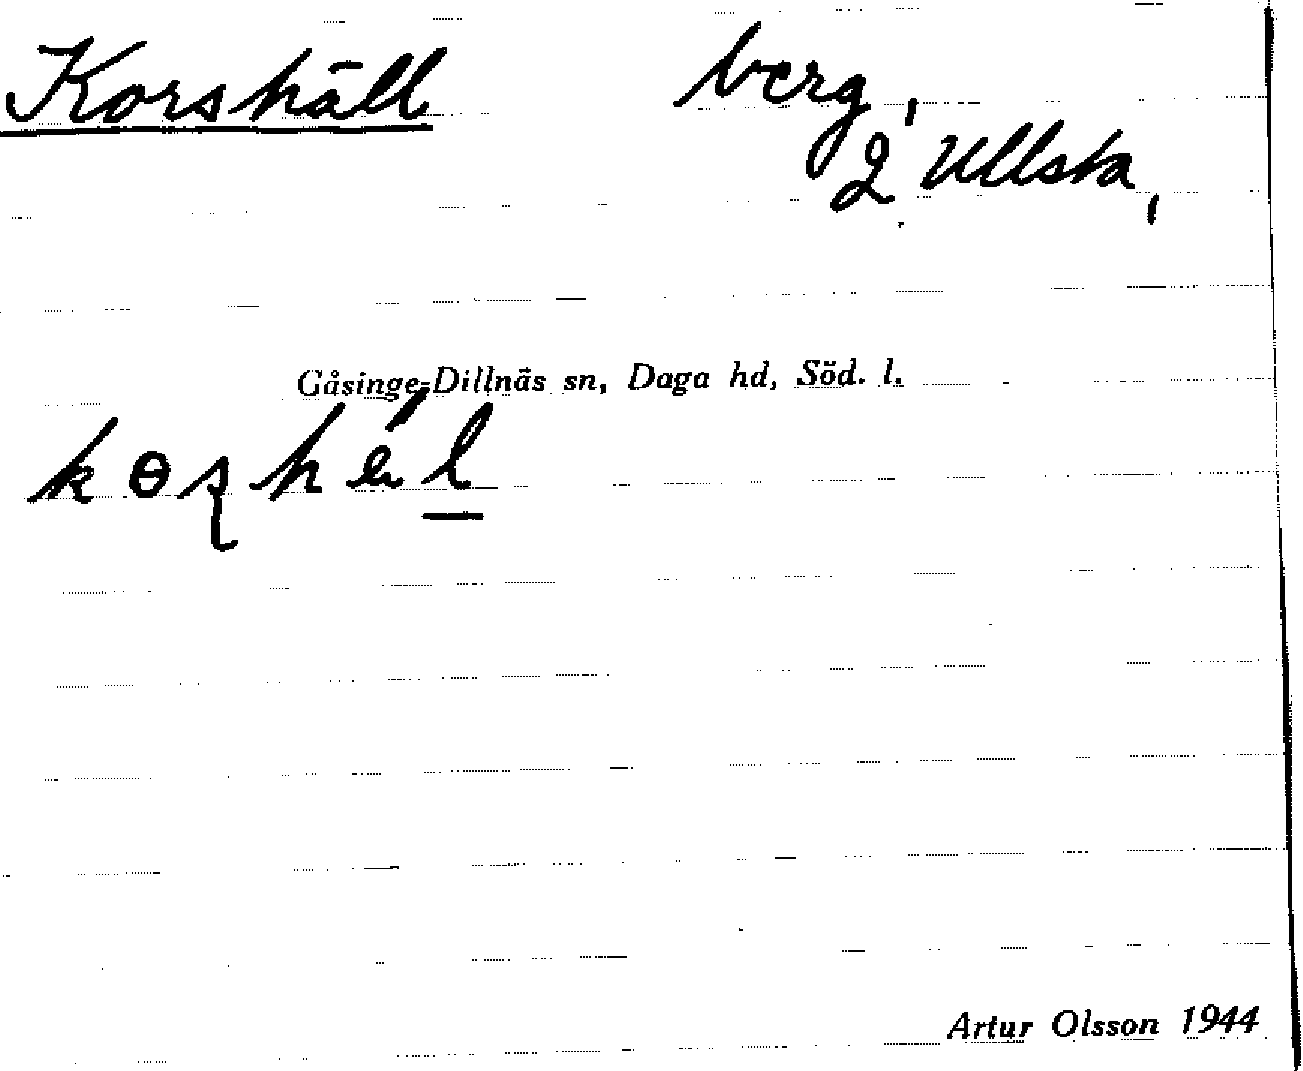 Korshäll berg,
2 Ullsta,
Gåsinge-Dillnäs sn, Daga hd, Söd. l.
Artur Olsson 1944